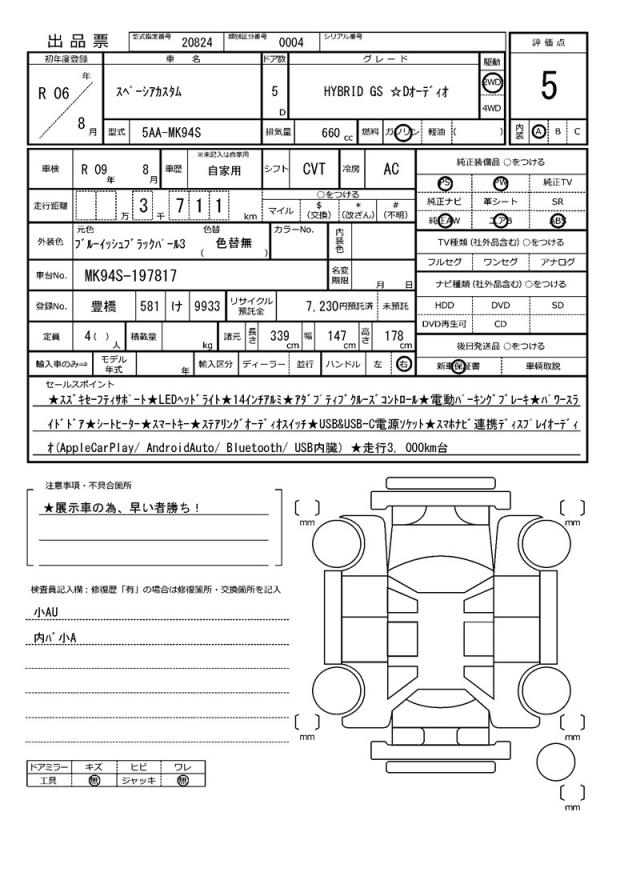 出品票
型式指定番号 20824 類別区分番号 0004 シリアル番号
初年度登録 車名 ドア数 グレード 駆動 評価点
R 06 年 8 月
スペーシアカスタム 5 D HYBRID GS ☆Dオーディオ 2WD 4WD
5
型式 5AA-MK94S 排気量 660 cc 燃料 ガソリン 軽油 ( )
内装 A B C
車検 R 09 年 8 月 車歴 ※未記入は自家用 自家用 シフト CVT 冷房 AC
走行距離 万 3 千 7 1 1 km
○をつける
マイル $(交換) *(改ざん) #(不明)
外装色 元色 ブルーイッシュブラックパール3 色替 ( 色替無 ) カラーNo. 内装色
車台No. MK94S-197817 名変期限 月 日
登録No. 豊橋 581 け 9933 リサイクル預託金 7,230円預託済 未預託
定員 4( ) 人 積載量 kg 諸元 長さ 339 cm 幅 147 cm 高さ 178 cm
輸入車のみ⇒ モデル年式 年 輸入区分 ディーラー 並行 ハンドル 左 右
純正装備品 ○をつける
PS PW 純正TV
純正ナビ 革シート SR
純正AW エアB ABS
TV種類 (社外品含む) ○をつける
フルセグ ワンセグ アナログ
ナビ種類 (社外品含む) ○をつける
HDD DVD SD
DVD再生可 CD
後日発送品 ○をつける
新車保証書 車輌取説
セールスポイント
★スズキセーフティサポート★LEDヘッドライト★14インチアルミ★アダプティブクルーズコントロール★電動パーキングブレーキ★パワースラ
イドドア★シートヒーター★スマートキー★ステアリングオーディオスイッチ★USB&USB-C電源ソケット★スマホナビ連携ディスプレイオーディ
オ(AppleCarPlay/ AndroidAuto/ Bluetooth/ USB内臓) ★走行3, 000km台
注意事項・不具合箇所
★展示車の為、早い者勝ち！
検査員記入欄：修復歴「有」の場合は修復箇所・交換箇所を記入
小AU
内バ小A
ドアミラー キズ ヒビ ワレ
工具 無 ジャッキ 無
mm
mm
mm
mm
mm